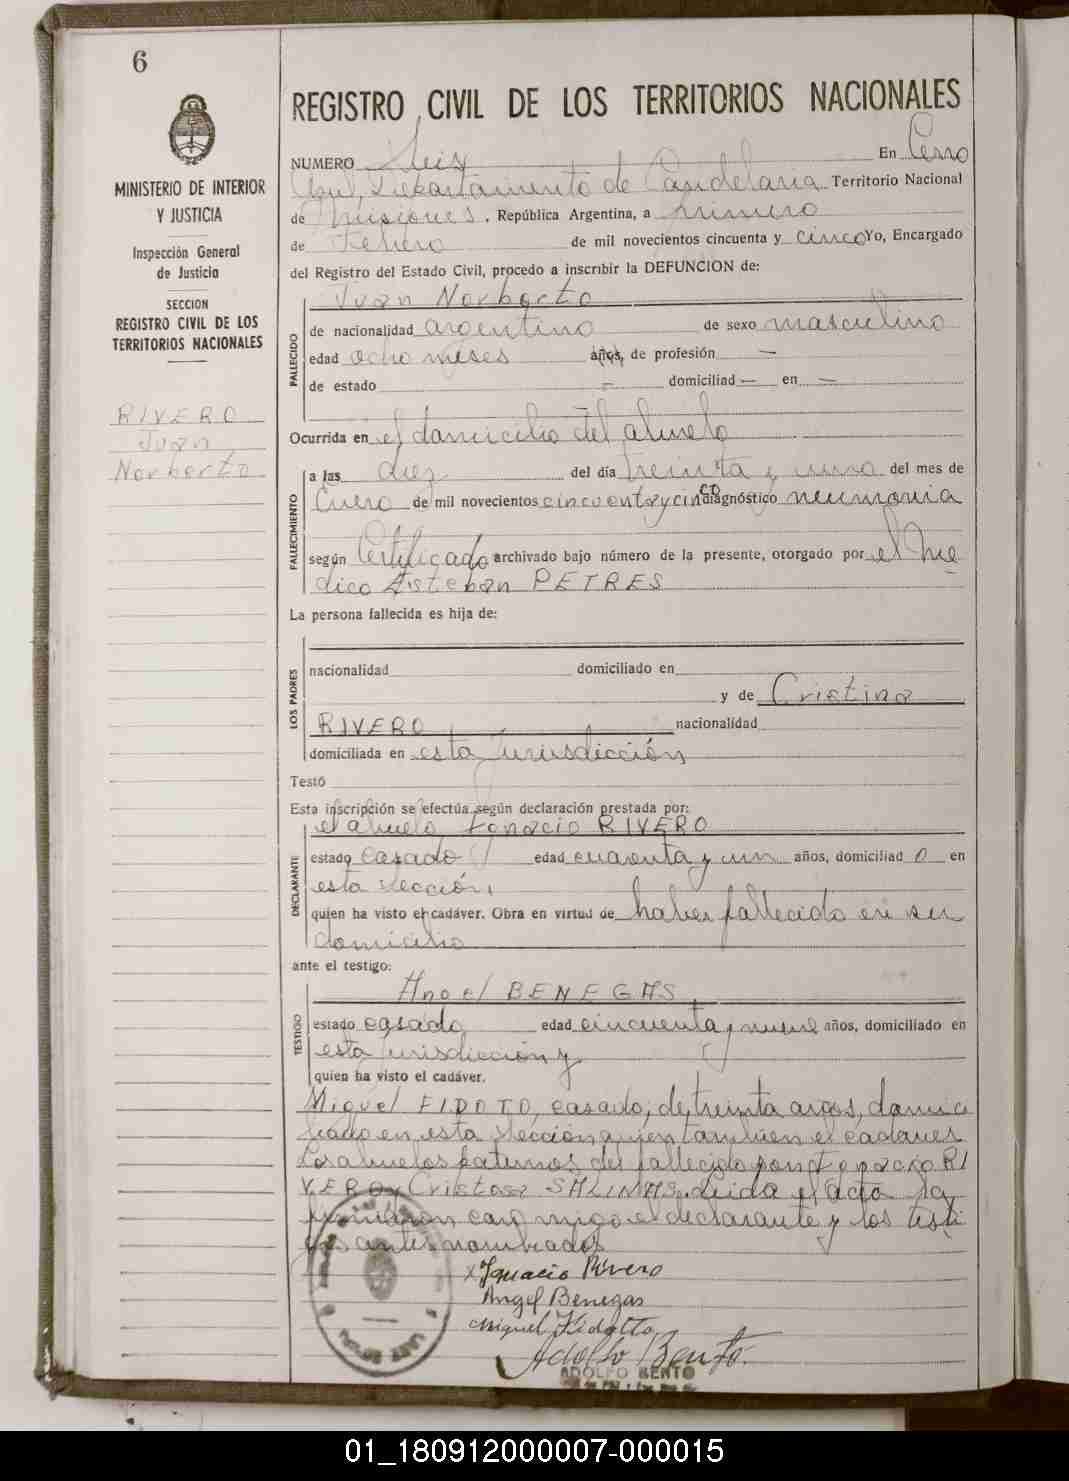 6
MINISTERIO DE INTERIOR
Y JUSTICIA
Inspección General
de Justicia
SECCION
REGISTRO CIVIL DE LOS
TERRITORIOS NACIONALES
RIVERO
Juan
Norberto
REGISTRO CIVIL DE LOS TERRITORIOS NACIONALES
NUMERO Seis En Cerro
Azul, Departamento de Candelaria Territorio Nacional
de Misiones, República Argentina, a primero
de Febrero de mil novecientos cincuenta y cinco Yo, Encargado
del Registro del Estado Civil, procedo a inscribir la DEFUNCION de:
Juan Norberto
FALLECIDO
de nacionalidad argentino de sexo masculino
edad ocho meses años, de profesión —
de estado — domiciliad — en —
Ocurrida en el domicilio del abuelo
FALLECIMIENTO
a las diez del día treinta y uno del mes de
Enero de mil novecientos cincuenta y cinco diagnóstico neumonia
según Certificado archivado bajo número de la presente, otorgado por el Mé
dico Esteban PETRES
La persona fallecida es hija de:
LOS PADRES
nacionalidad domiciliado en
y de Cristina
RIVERO nacionalidad
domiciliada en esta jurisdicción
Testó
Esta inscripción se efectúa según declaración prestada por:
el abuelo Ignacio RIVERO
DECLARANTE
estado casado edad cuarenta y un años, domiciliad o en
esta sección
quien ha visto el cadáver. Obra en virtud de haber fallecido en su
domicilio
ante el testigo:
Angel BENEGAS
TESTIGO
estado casado edad cincuenta y nueve años, domiciliado en
esta jurisdicción y
quien ha visto el cadáver.
Miguel FIDOTO, casado, de treinta años, domici
liado en esta sección quien también el cadaver
Los abuelos paternos del fallecido son Ignacio RI
VERO y SALINAS. Leida el acta la
firmaron conmigo el declarante y los testi
gos antes nombrados
x Ignacio Rivero
Angel Benegas
Miguel Fidotto
Adolfo Bento.
ADOLFO BENTO
01_180912000007-000015